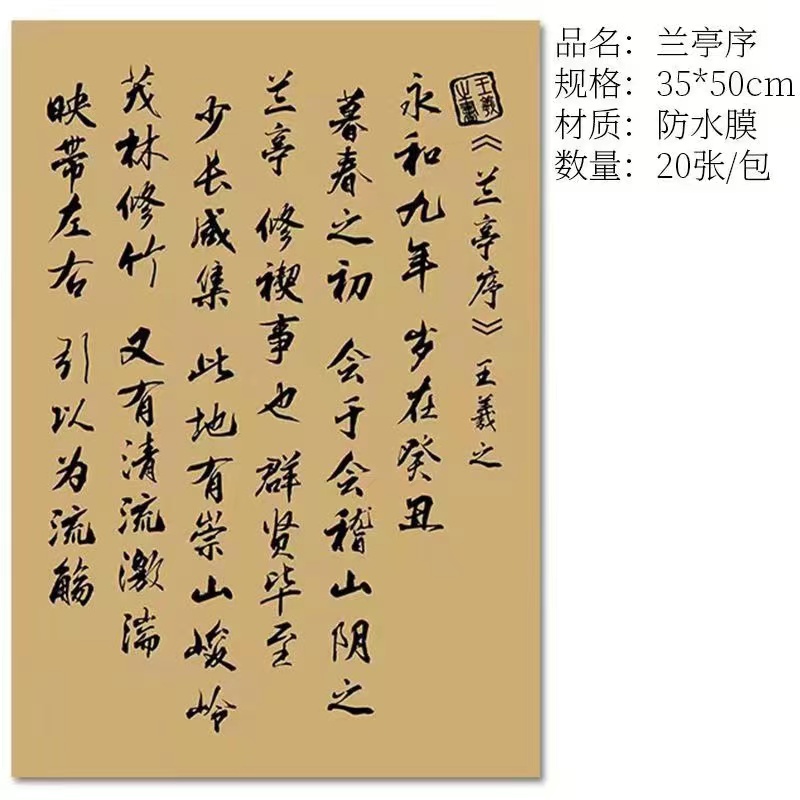 王羲
之書
《兰亭序》王羲之
永和九年 岁在癸丑
暮春之初 会于会稽山阴之
兰亭 修禊事也 群贤毕至
少长咸集 此地有崇山峻岭
茂林修竹 又有清流激湍
映带左右 引以为流觞
品名：兰亭序
规格：35*50cm
材质：防水膜
数量：20张/包